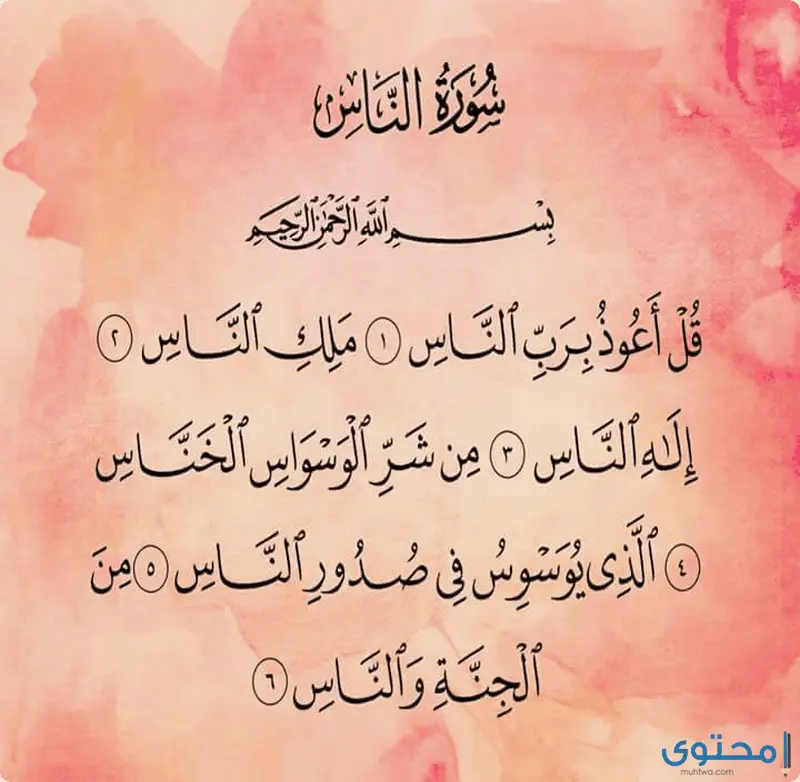 سُورَةُ النَّاسِ
بِسْمِ اللَّهِ الرَّحْمَٰنِ الرَّحِيمِ
قُلْ أَعُوذُ بِرَبِّ ٱلنَّاسِ ١ مَلِكِ ٱلنَّاسِ ٢
إِلَٰهِ ٱلنَّاسِ ٣ مِن شَرِّ ٱلْوَسْوَاسِ ٱلْخَنَّاسِ
٤ ٱلَّذِى يُوَسْوِسُ فِى صُدُورِ ٱلنَّاسِ ٥ مِنَ
ٱلْجِنَّةِ وَٱلنَّاسِ ٦
محتوى
muhtwa.com